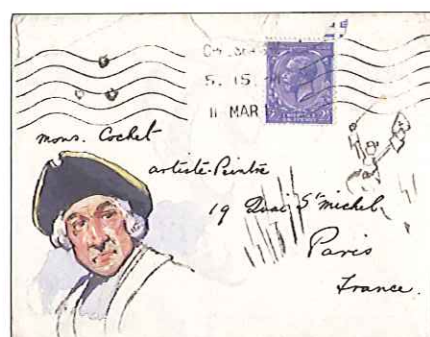 5. 15
11 MAR
mons. Cochet
artiste-Peintre
19 Quai St michel,
Paris
France.